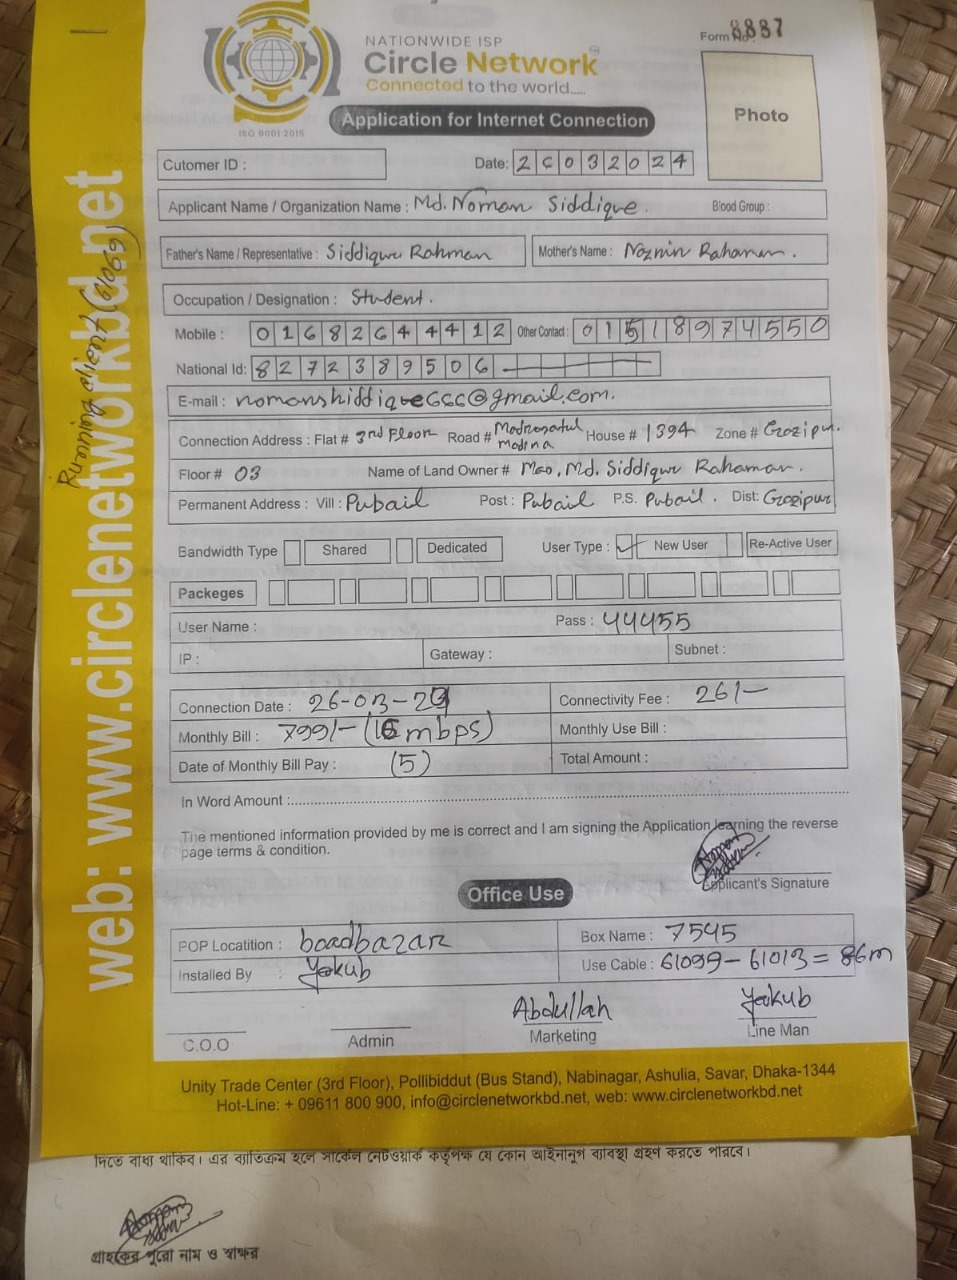 Form No: 8887
NATIONWIDE ISP
Circle Network
Connected to the world.....
ISO 9001:2015
Application for Internet Connection
Photo
Cutomer ID :
Date: 26032024
Applicant Name / Organization Name : Md. Noman Siddique. Blood Group :
Father's Name / Representative : Siddiqur Rahman Mother's Name : Naznin Rahaman.
Occupation / Designation : Student.
Mobile : 01682644412 Other Contact : 01518974550
National Id: 8272389506
E-mail : nomanshiddique666@gmail.com.
Connection Address : Flat # 3rd Floor Road # Madrasatul madina House # 1394 Zone # Gazipur.
Floor # 03 Name of Land Owner # Md. Siddiqur Rahaman.
Permanent Address : Vill : Pubail Post : Pubail P.S. Pubail. Dist: Gazipur
Bandwidth Type Shared Dedicated User Type : New User Re-Active User
Packeges
User Name : Pass : 44455
IP : Gateway : Subnet :
Connection Date : 26-03-24 Connectivity Fee : 261/-
Monthly Bill : 799/- (mbps) Monthly Use Bill :
Date of Monthly Bill Pay : (5) Total Amount :
In Word Amount :
The mentioned information provided by me is correct and I am signing the Application learning the reverse
page terms & condition.
Applicant's Signature
Office Use
POP Locatition : boardbazar Box Name : 7545
Installed By : Yakub Use Cable : 61099 - 61013 = 86m
Abdullah Yakub
C.O.O Admin Marketing Line Man
Unity Trade Center (3rd Floor), Pollibiddut (Bus Stand), Nabinagar, Ashulia, Savar, Dhaka-1344
Hot-Line: + 09611 800 900, info@circlenetworkbd.net, web: www.circlenetworkbd.net
web: www.circlenetworkbd.net
Running client
দিতে বাধ্য থাকিব। এর ব্যাতিক্রম হলে সার্কেল নেটওয়ার্ক কর্তৃপক্ষ যে কোন আইনানুগ ব্যাবস্থা গ্রহণ করতে পারবে।
গ্রাহকের পুরো নাম ও স্বাক্ষর